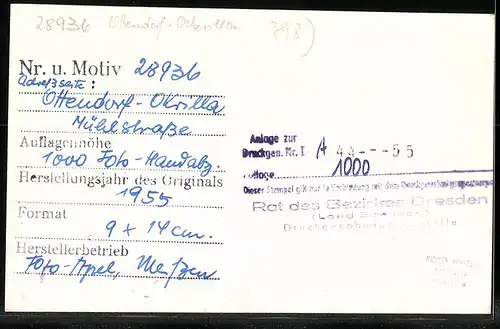 28936 Ottendorf-Okrilla 398)
Nr. u. Motiv 28936
Adreßseite:
Ottendorf-Okrilla
Mühlstraße
Auflagenhöhe
1000 Foto-Handabz.
Herstellungsjahr des Originals
1955
Format
9 x 14 cm.
Herstellerbetrieb
Foto-Apel, Meißen
Anlage zur
Druckgen. Nr. I A 44---55
Auflage 1000
Dieser Stempel gilt nur in Verbindung mit dem
Rat des Bezirkes Dresden
(Land Sachsen)